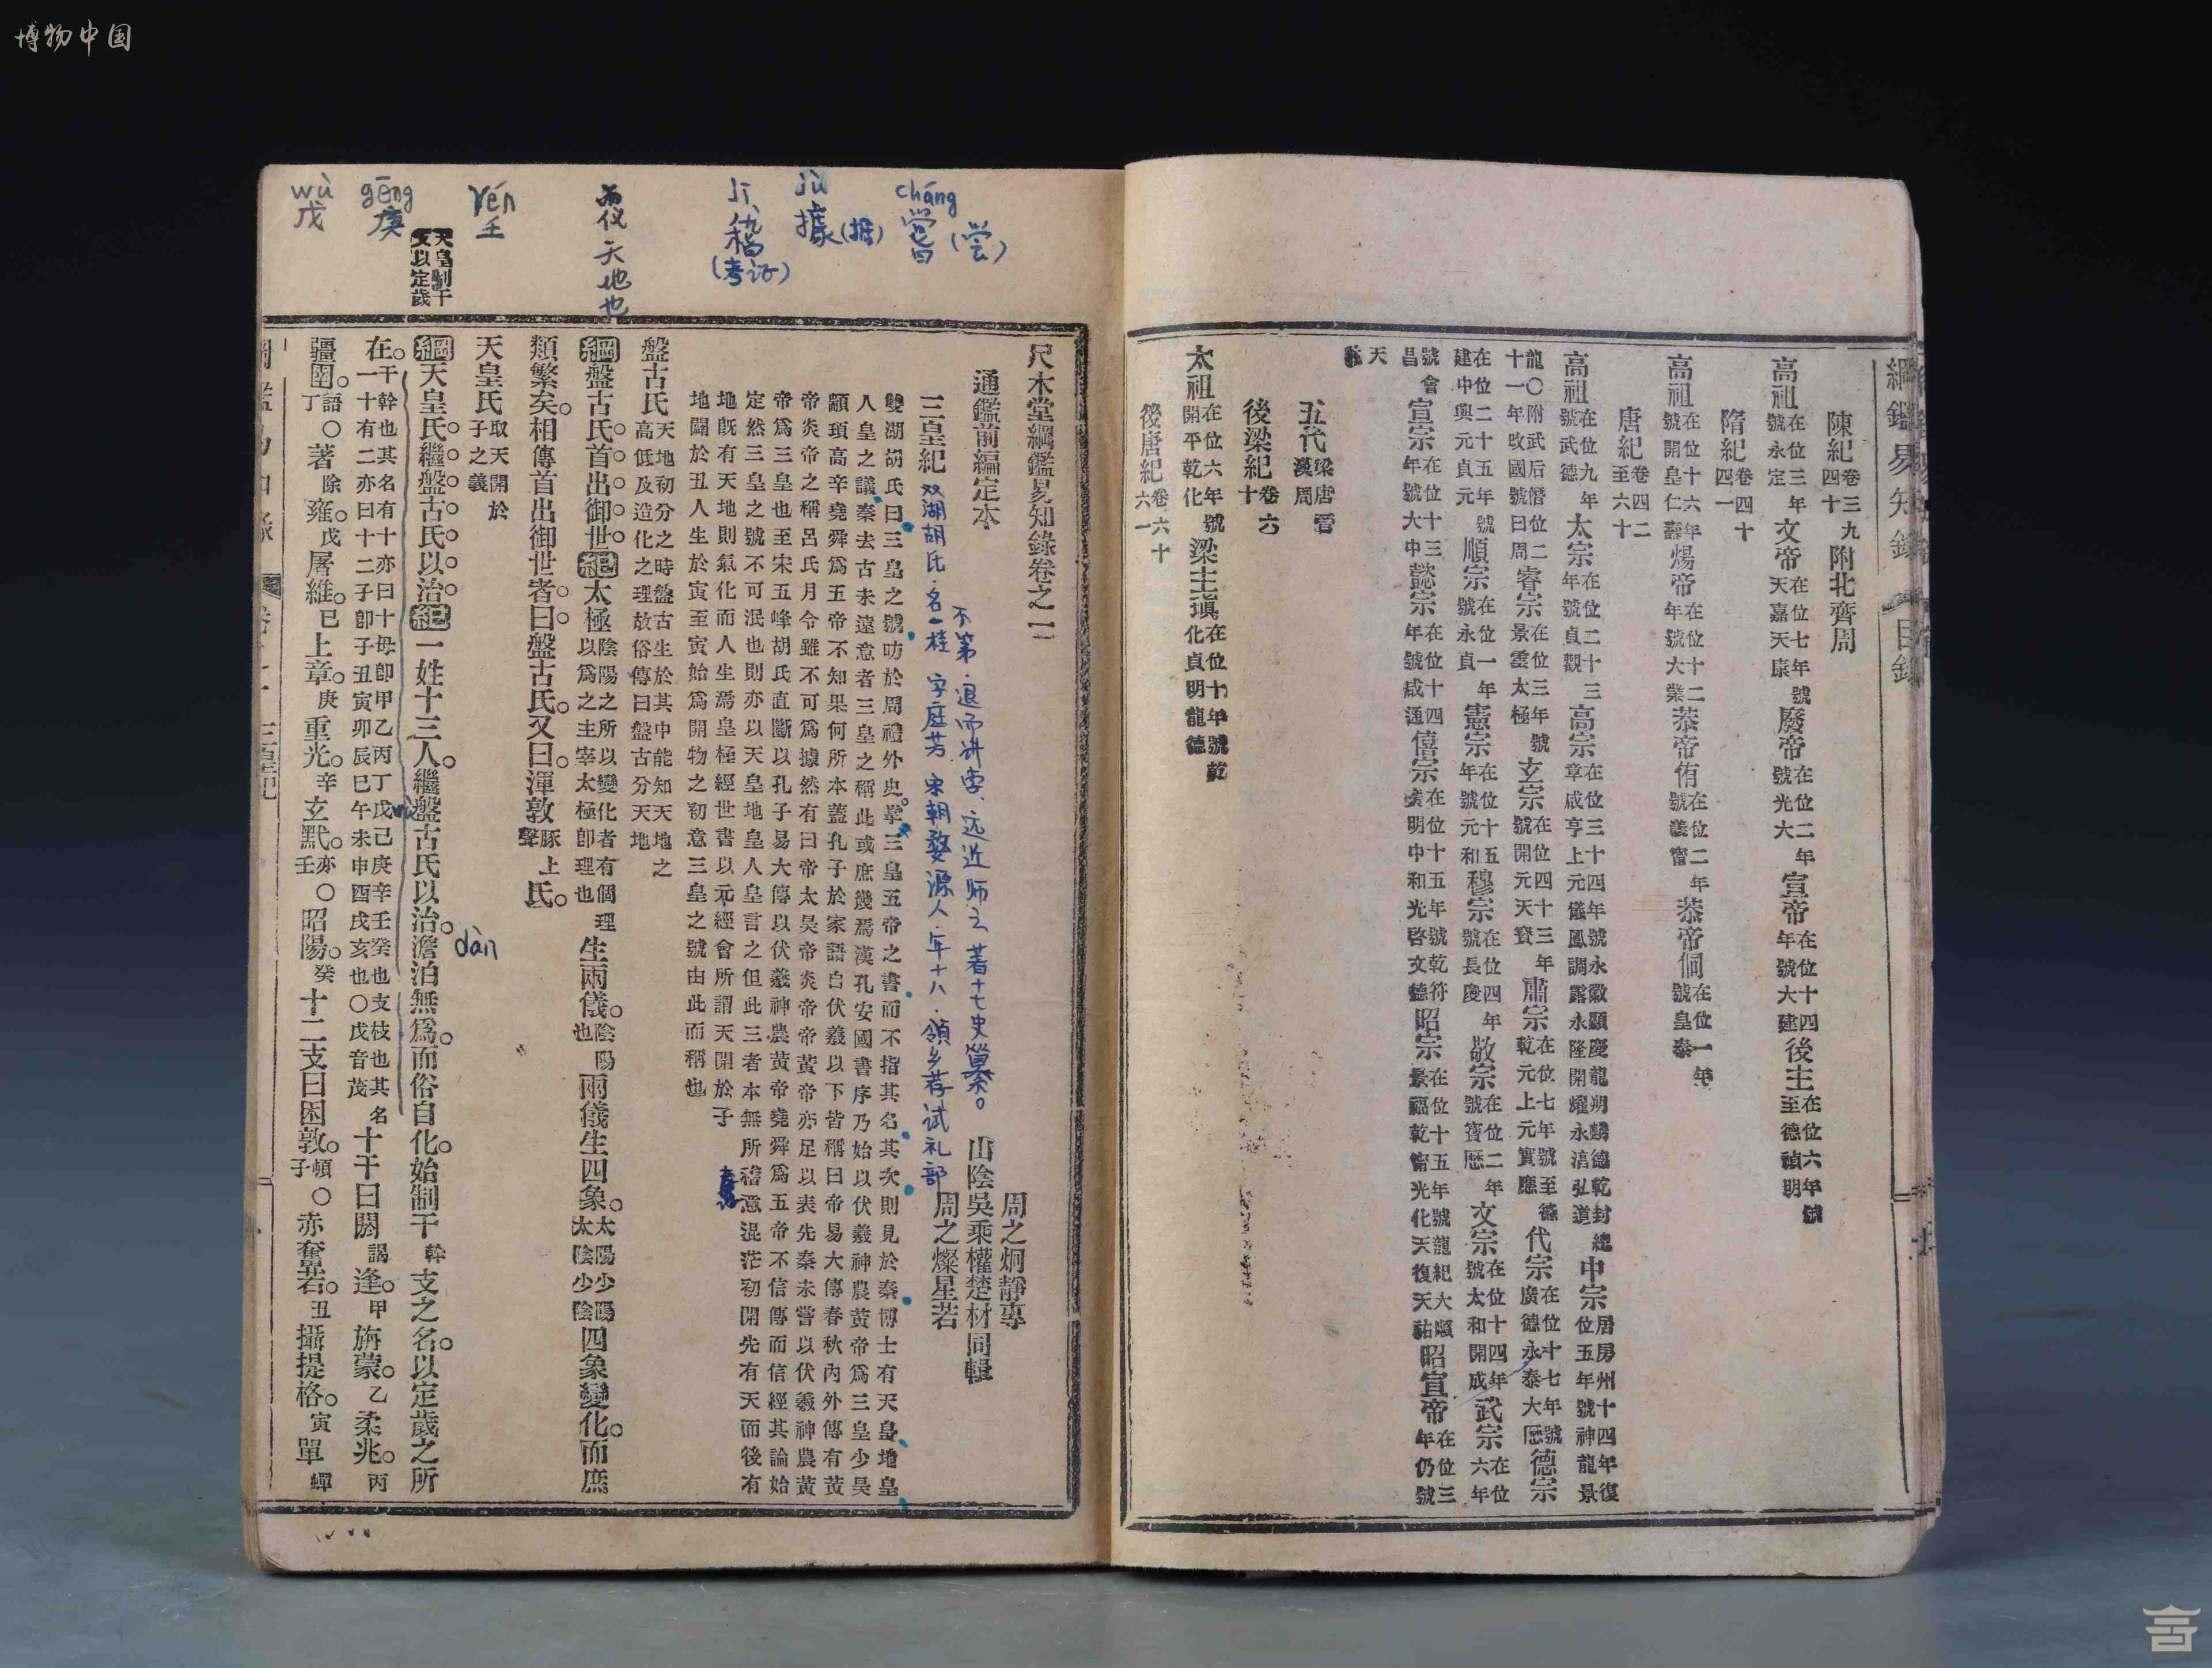 博物中国
綱鑑易知錄 目錄
陳紀 卷三九 四十 附北齊周
高祖 在位三年 號永定 文帝 在位七年號 天嘉天康 廢帝 在位二年 號光大 宣帝 在位十四 年號大建 後主 在位六年號 至德禎明
隋紀 卷四十 四一
高祖 在位十六年 號開皇仁壽 煬帝 在位十二 年號大業 恭帝侑 在位二年 號義甯 恭帝侗 在位一年 號皇泰
唐紀 卷四二 至六十
高祖 在位九年 號武德 太宗 在位二十三 年號貞觀 高宗 在位三十四年號永徽顯慶龍朔麟德乾封總 章咸亨上元儀鳳調露永隆開耀永淳弘道 中宗 居房州十四年復 位五年號神龍景
龍〇附武后僭位二 十一年改國號曰周 睿宗 在位三年號 景雲太極 玄宗 在位四十三年 號開元天寶 肅宗 在位七年號至德 乾元上元寶應 代宗 在位十七年號 廣德永泰大曆 德宗
在位二十五年號 建中興元貞元 順宗 在位一年 號永貞 憲宗 在位十五 年號元和 穆宗 在位四年 號長慶 敬宗 在位二年 號寶曆 文宗 在位十四年 號太和開成 武宗 在位六年
號會昌 宣宗 在位十三 年號大中 懿宗 在位十四 年號咸通 僖宗 在位十五年號乾符 廣明中和光啓文德 昭宗 在位十五年號龍紀大順 景福乾甯光化天復天祐 昭宣帝 在位三 年仍號
天祐
五代 梁唐晉 漢周
後梁紀 卷六十
太祖 在位六年號 開平乾化 梁主瑱 在位十年號乾 化貞明龍德
後唐紀 卷六十 六一
cháng
嘗(尝)
jù
據(据)
jī
稽
(考证)
两仪 天地也
rén
壬
gēng
庚
wù
戊
天皇制干
支以定歲
尺木堂綱鑑易知錄卷之一
通鑑前編定本
周之炯靜專
山陰吳乘權楚材同輯
周之燦星若
三皇紀
双湖胡氏.名一桂 字庭芳 宋朝婺源人.年十八.領乡荐試礼部
不第.退而讲学.远近师之 著十七史纂。
雙湖胡氏曰三皇之號昉於周禮外史掌三皇五帝之書而不指其名其次則見於秦博士有天皇地皇
人皇之議秦去古未遠意者三皇之稱此或庶幾焉漢孔安國書序乃始以伏羲神農黃帝爲三皇少昊
顓頊高辛堯舜爲五帝不知果何所本蓋孔子於家語自伏羲以下皆稱曰帝易大傳春秋內外傳有黃
帝炎帝之稱呂氏月令雖不可爲據然有曰帝太昊帝炎帝帝黃帝亦足以表先秦未嘗以伏羲神農黃
帝爲三皇也至宋五峰胡氏直斷以孔子易大傳以伏羲神農黃帝堯舜爲五帝不信傳而信經其論始
定然三皇之號不可泯也則亦以天皇地皇人皇言之但此三者本無所稽意混茫初開先有天而後有
地旣有天地則氣化而人生焉皇極經世書以元經會所謂天開於子
地闢於丑人生於寅至寅始爲開物之初意三皇之號由此而稱也
盤古氏 天地初分之時盤古生於其中能知天地之 高低及造化之理故俗傳曰盤古分天地
綱盤古氏首出御世。紀太極 陰陽之所以變化者有個理 以爲之主宰太極卽理也 生兩儀。 陰陽也 兩儀生四象。 太陽少陽 太陰少陰 四象變化。而庶
類繁矣。相傳首出御世者。曰盤古氏。又曰。渾敦 豚上聲 氏。
天皇氏 取天開於 子之義
綱天皇氏繼盤古氏以治。紀一姓十三人。繼盤古氏以治。澹泊無爲。而俗自化。始制干 幹 支之名。以定歲之所
dàn
在。 干幹也其名有十亦曰十母卽甲乙丙丁戊己庚辛壬癸也支枝也其名 一十有二亦曰十二子卽子丑寅卯辰巳午未申酉戌亥也〇戊音茂 十干曰閼 謁 逢。甲 旃蒙。乙 柔兆。丙
彊圉。語丁〇著 除 雍。戊 屠維。己 上章。庚 重光。辛 玄黓。亦壬〇昭陽。癸 十二支曰困敦。頓子〇赤奮若。丑 攝提格。寅 單 蟬
三皇紀